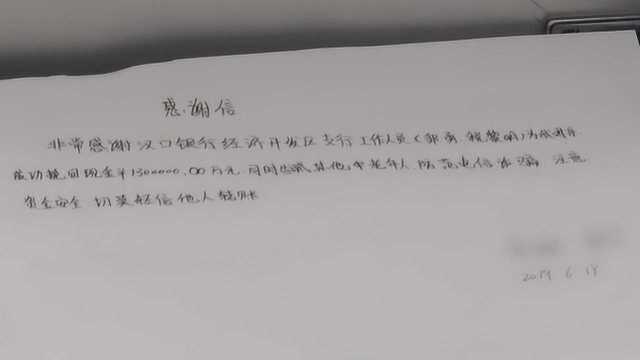 感谢信
非常感谢汉口银行经济开发区支行工作人员(郭勇 程黎明)为我们
成功挽回现金¥1300000.00万元 同时也提其他中老年人防范电信诈骗 注意
资金安全 切莫轻信他人转账
2019 6 18